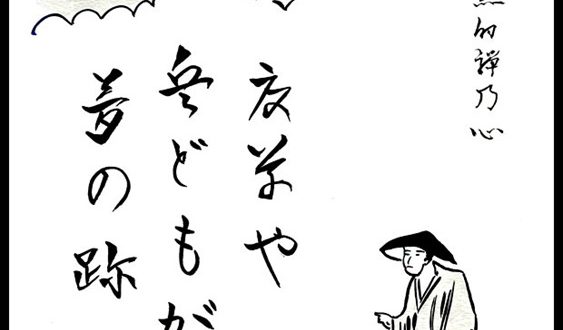 的禪乃心
夏草や
兵どもが
夢の跡